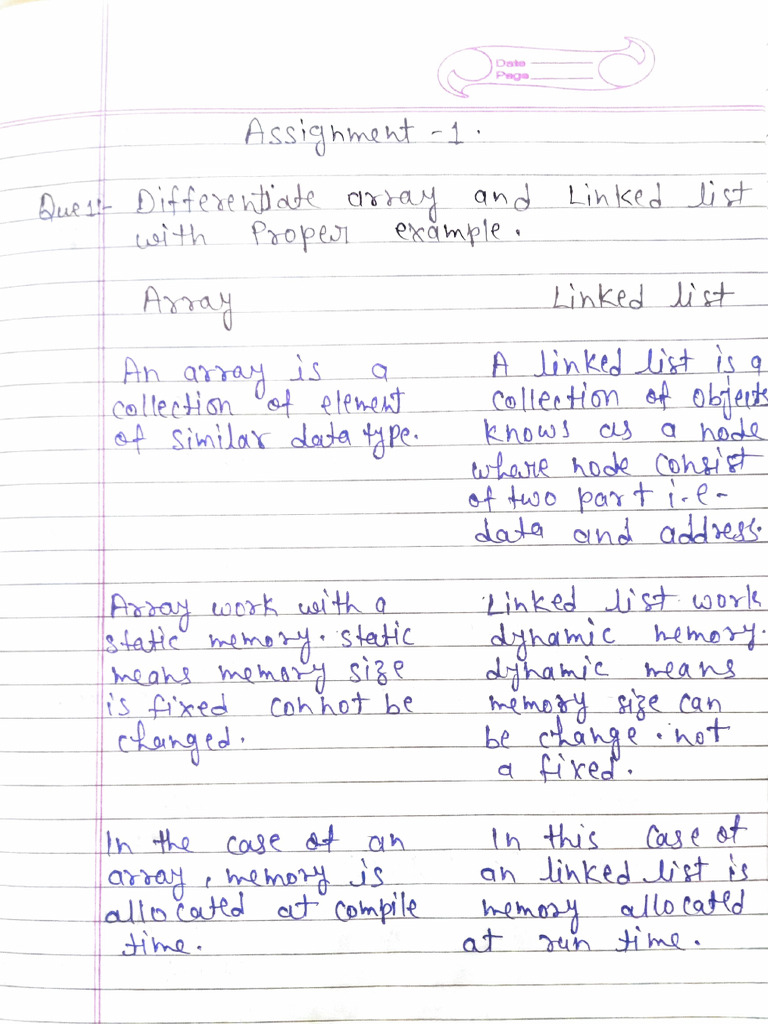 Date
Page
Assignment - 1.
Que1:- Differentiate array and Linked list
with Proper example.
Array
An array is a
collection of element
of similar data type.
Array work with a
static memory. static
means memory size
is fixed connot be
changed.
In the case of an
array, memory is
allocated at compile
time.
Linked list
A linked list is a
collection of objects
knows as a node
where node consist
of two part i-e-
data and address.
Linked list work
dynamic memory.
dynamic means
memory size can
be change. not
a fixed.
In this case of
an linked list is
memory allocated
at run time.